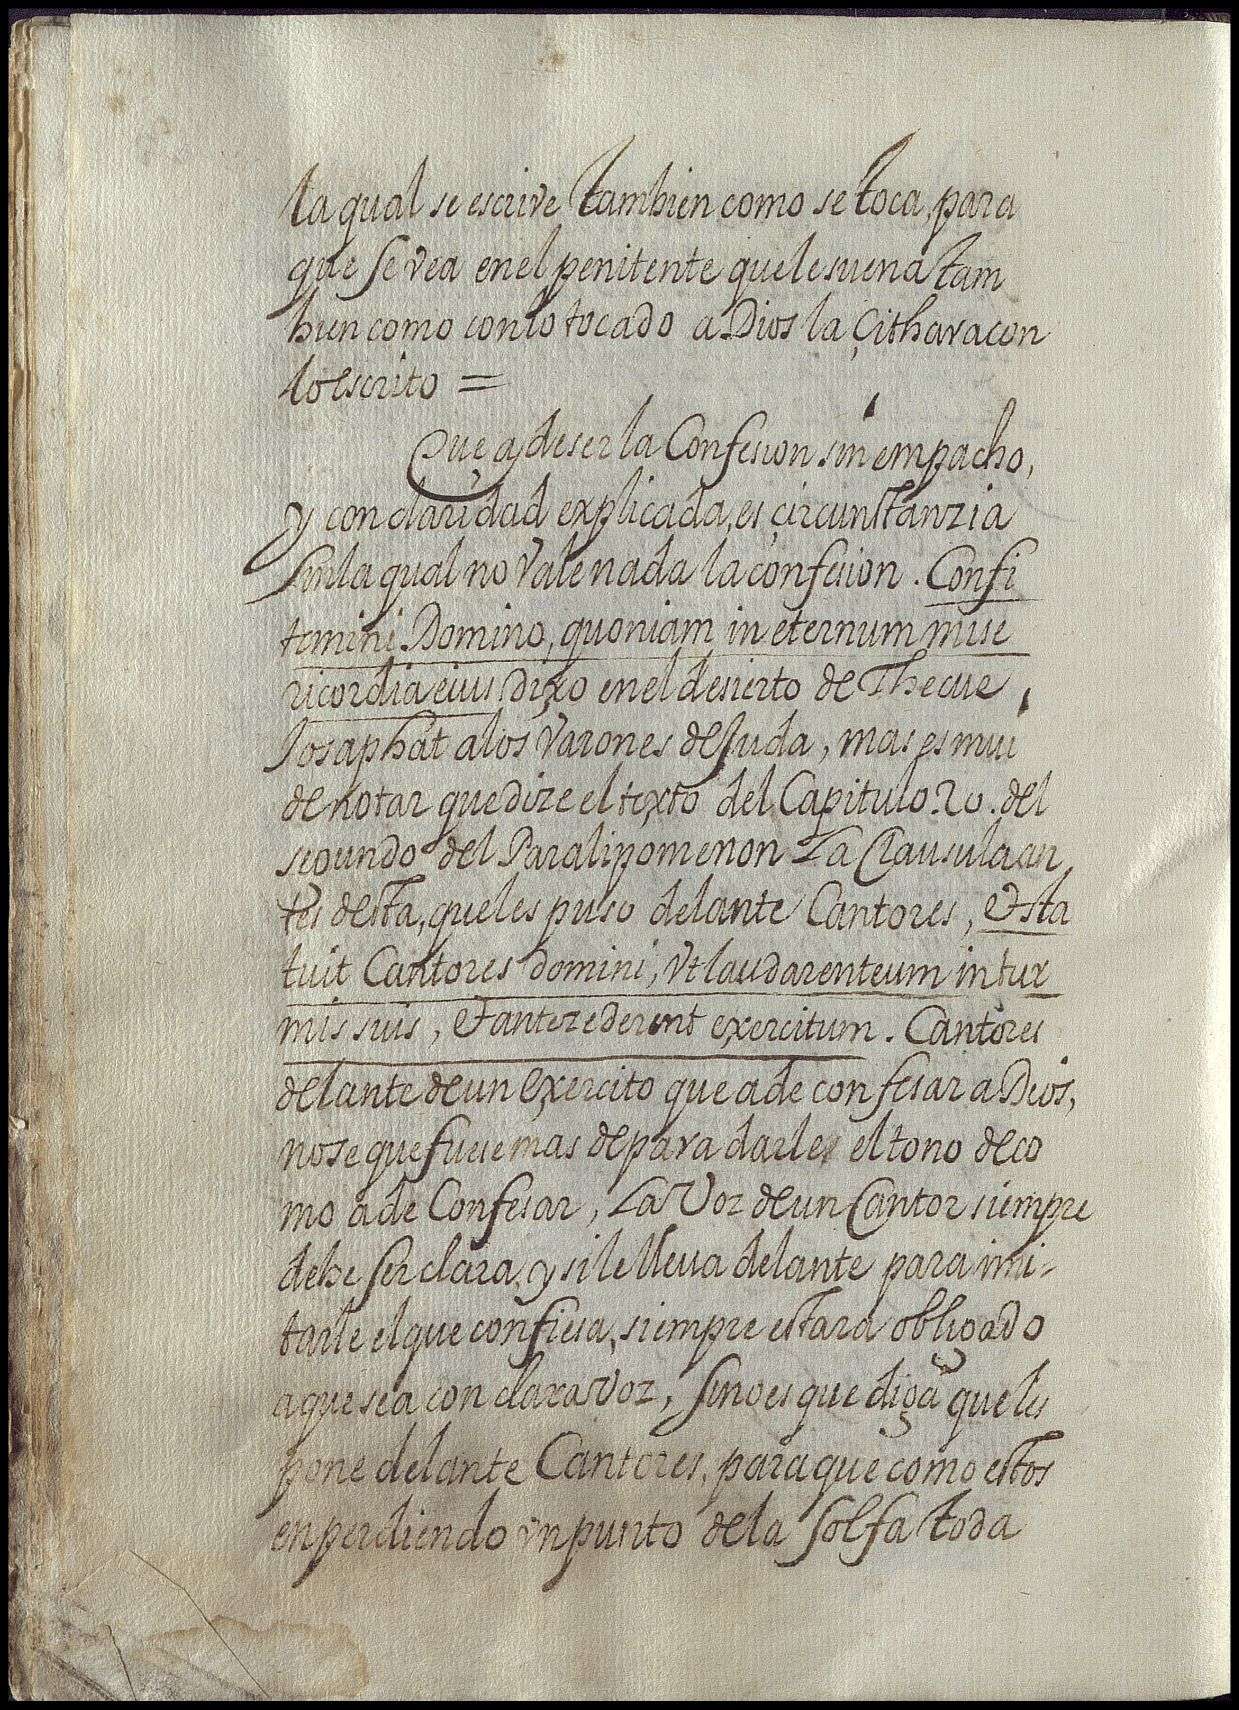 la qual se escrive tambien como se toca, para
que se vea en el penitente que le suena tam
bien como con lo tocado a Dios la Çithara con
lo escrito =
Que a de ser la Confesion sin empacho,
y con claridad explicada, es çircunstanzia
sin la qual no vale nada la confesion. Confi
temini Domino, quoniam in eternum mise
ricordia eius dixo en el desierto de Thecue
Josaphat a los Varones de Juda, mas es mui
de notar que dize el texto del Capitulo. 20. del
segundo del Paralipomenon la Clausula an
tes desta, que les puso delante Cantores, et sta
tuit Cantores domini, vt laudarent eum in tur
mis suis, et antezederent exercitum. Cantores
delante de un exercito que a de confesar a Dios,
no se que fuese mas de para darles el tono de co
mo a de Confesar, la Voz de un Cantor siempre
debe ser clara, y si le lleua delante para imi-
tarle el que confiesa, siempre estara obligado
a que sea con clara voz, sino es que diga que les
pone delante Cantores, para que como estos
en perdiendo vn punto de la solfa toda